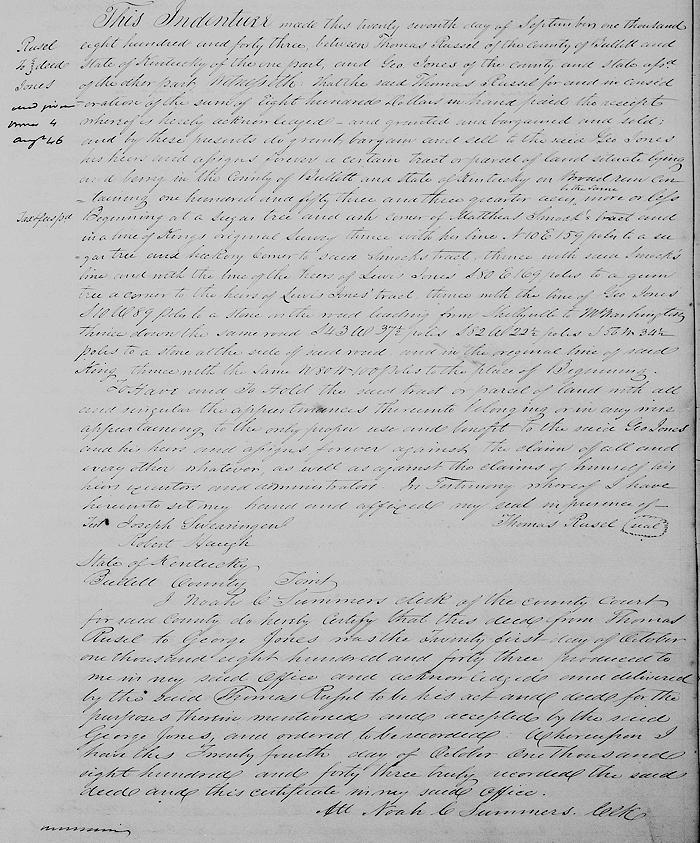 This Indenture made this twenty seventh day of September one thousand
Rusel
eight hundred and forty three, between Thomas Rusel of the county of Bullett and
to deed
State of Kentucky of the one part, and Geo Jones of the county and state afsd.
Jones
of the other part, Witnesseth, that the said Thomas Rusel for and in consid
-oration of the sum of Eight hundred Dollars in hand paid the receipt
4
whereof is hereby acknowledged - and granted and bargained and sold;
Augt 46
and by these presents do grant, bargain and sell to the said Geo Jones
his heirs and assigns forever a certain tract or parcel of land situate lying
and being in the County of Bullett and State of Kentucky on Broad run Con
to the same
-taining one hundred and fifty three and three quarter acres, more or less
Tax & fees pd
Beginning at a sugar tree and ash corner of Matthias Smock's tract and
in a line of Kings original Survey thence with his line N 10 E 159 poles to a su
-gar tree and hickory corner to said Smocks tract, thence with said Smock's
line and with the line of the heirs of Lewis Jones S 80 E 169 poles to a gum
tree a corner to the heirs of Lewis Jones' tract, thence with the line of Geo Jones
S 10 W 89 poles to a stone on the road leading from
thence down the same road S 43 W 37½ poles S 52 W 22½ poles S 50 W 34½
poles to a stone at the side of said road and in the original line of said
King, thence with the same N 80 W 100 poles to the place of Beginning.
To Have and To Hold the said tract or parcel of land with all
and singular the appurtenances thereunto belonging or in any wise
appertaining to the only proper use and benefit to the said Geo Jones
and his heirs and assigns forever against the claim of all and
every other whatever, as well as against the claims of himself his
heirs executors and administrators. In Testimony whereof I have
hereunto set my hand and affixed my seal in presence of
Test Joseph Swearingen Thomas Rusel (seal)
Robert Haugh
State of Kentucky
Bullett County Sinst
I Noah C Summers clerk of the county court
for said County do hereby Certify that this deed from Thomas
Rusel to George Jones was the Twenty first day of October
one thousand eight hundred and forty three produced to
me in my said Office and acknowledged and delivered
by the said Thomas Rusel to be his act and deed for the
purposes therein mentioned and accepted by the said
George Jones, and ordered to be recorded. Whereupon I
have this Twenty fourth day of October One thousand
eight hundred and forty three truly recorded the said
deed and this certificate in my said Office.
Att Noah C Summers. Clk